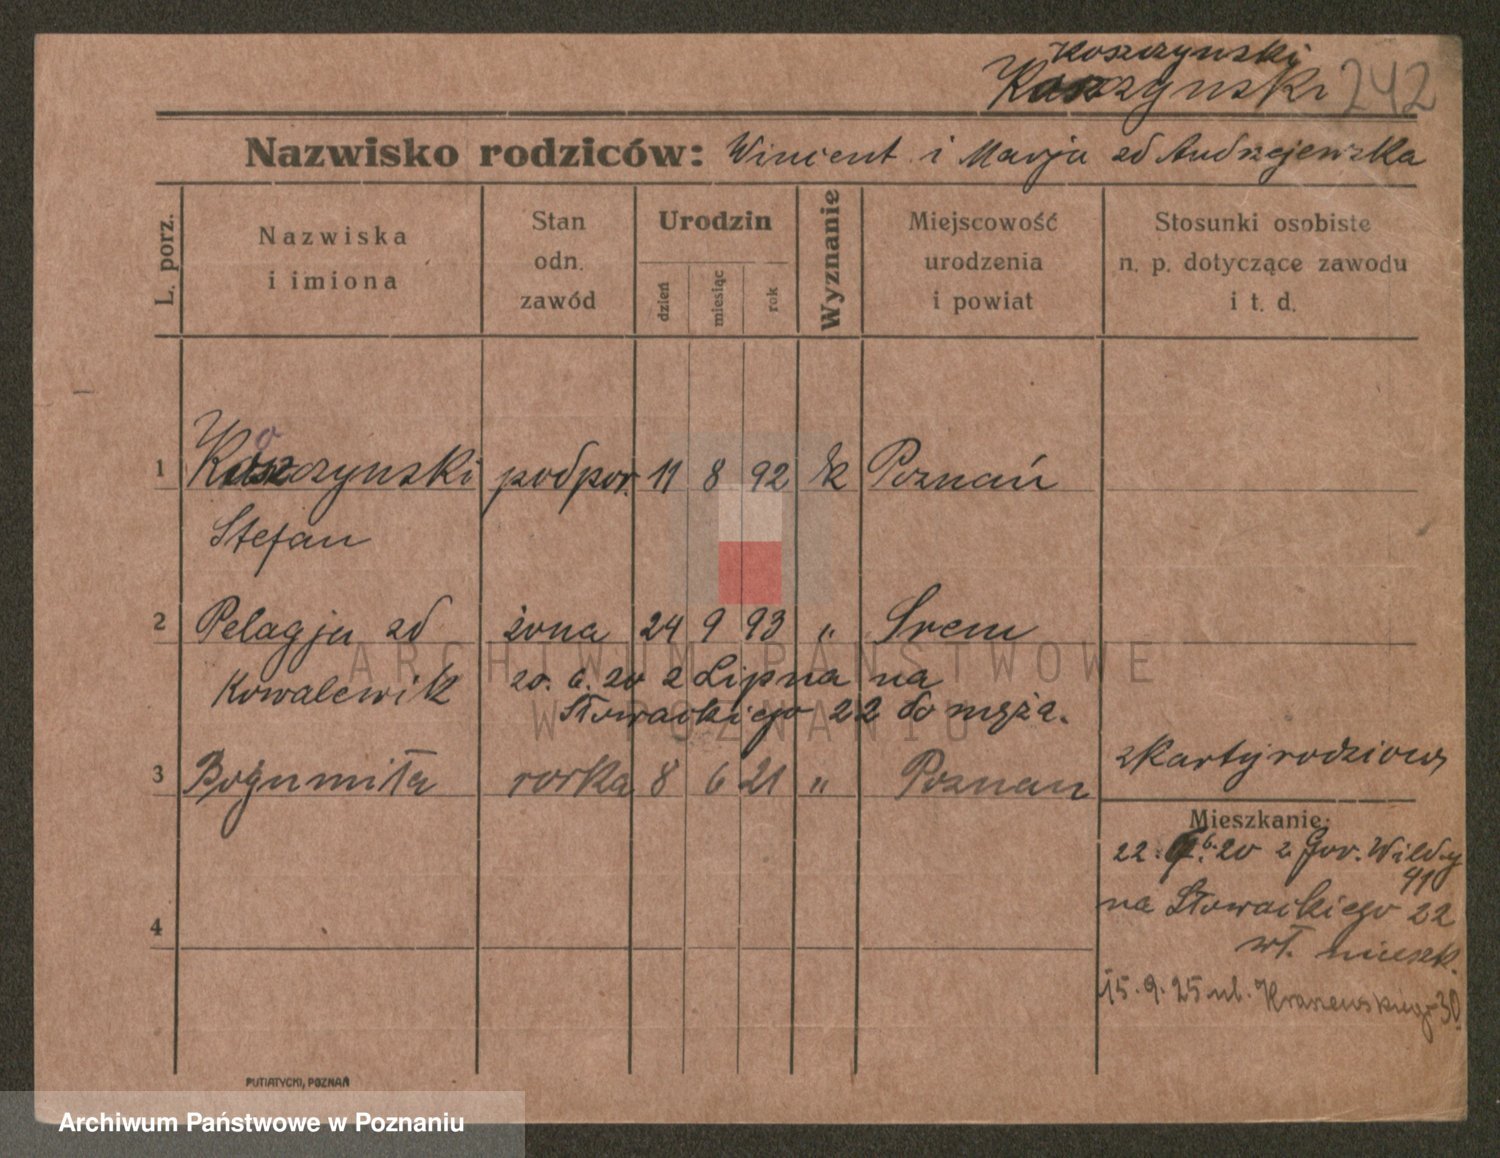 Koszczynski
Koszczynski 242
Nazwisko rodziców: Wincent i Marja zd Andrzejewska
L. porz.
Nazwiska
i imiona
Stan
odn.
zawód
Urodzin
dzień
miesiąc
rok
Wyznanie
Miejscowość
urodzenia
i powiat
Stosunki osobiste
n. p. dotyczące zawodu
i t. d.
1 Koszczynski podpor. 11 8 92 rk Poznań
Stefan
2 Pelagja zd żona 24 9 93 " Srem
Kowalewik 20. 6. 20 z Lipna na
Słowackiego 22 do męża.
3 Bogumiła corka 8 6 21 " Poznan
z karty rodziców
Mieszkanie:
22. 6. 20 z Gor. Wildy
41
na Słowackiego 22
4
wł. mieszk.
15. 9. 25 ul. Kraszewskiego 30
PUTIATYCKI, POZNAŃ
ARCHIWUM PAŃSTWOWE
W POZNANIU
Archiwum Państwowe w Poznaniu